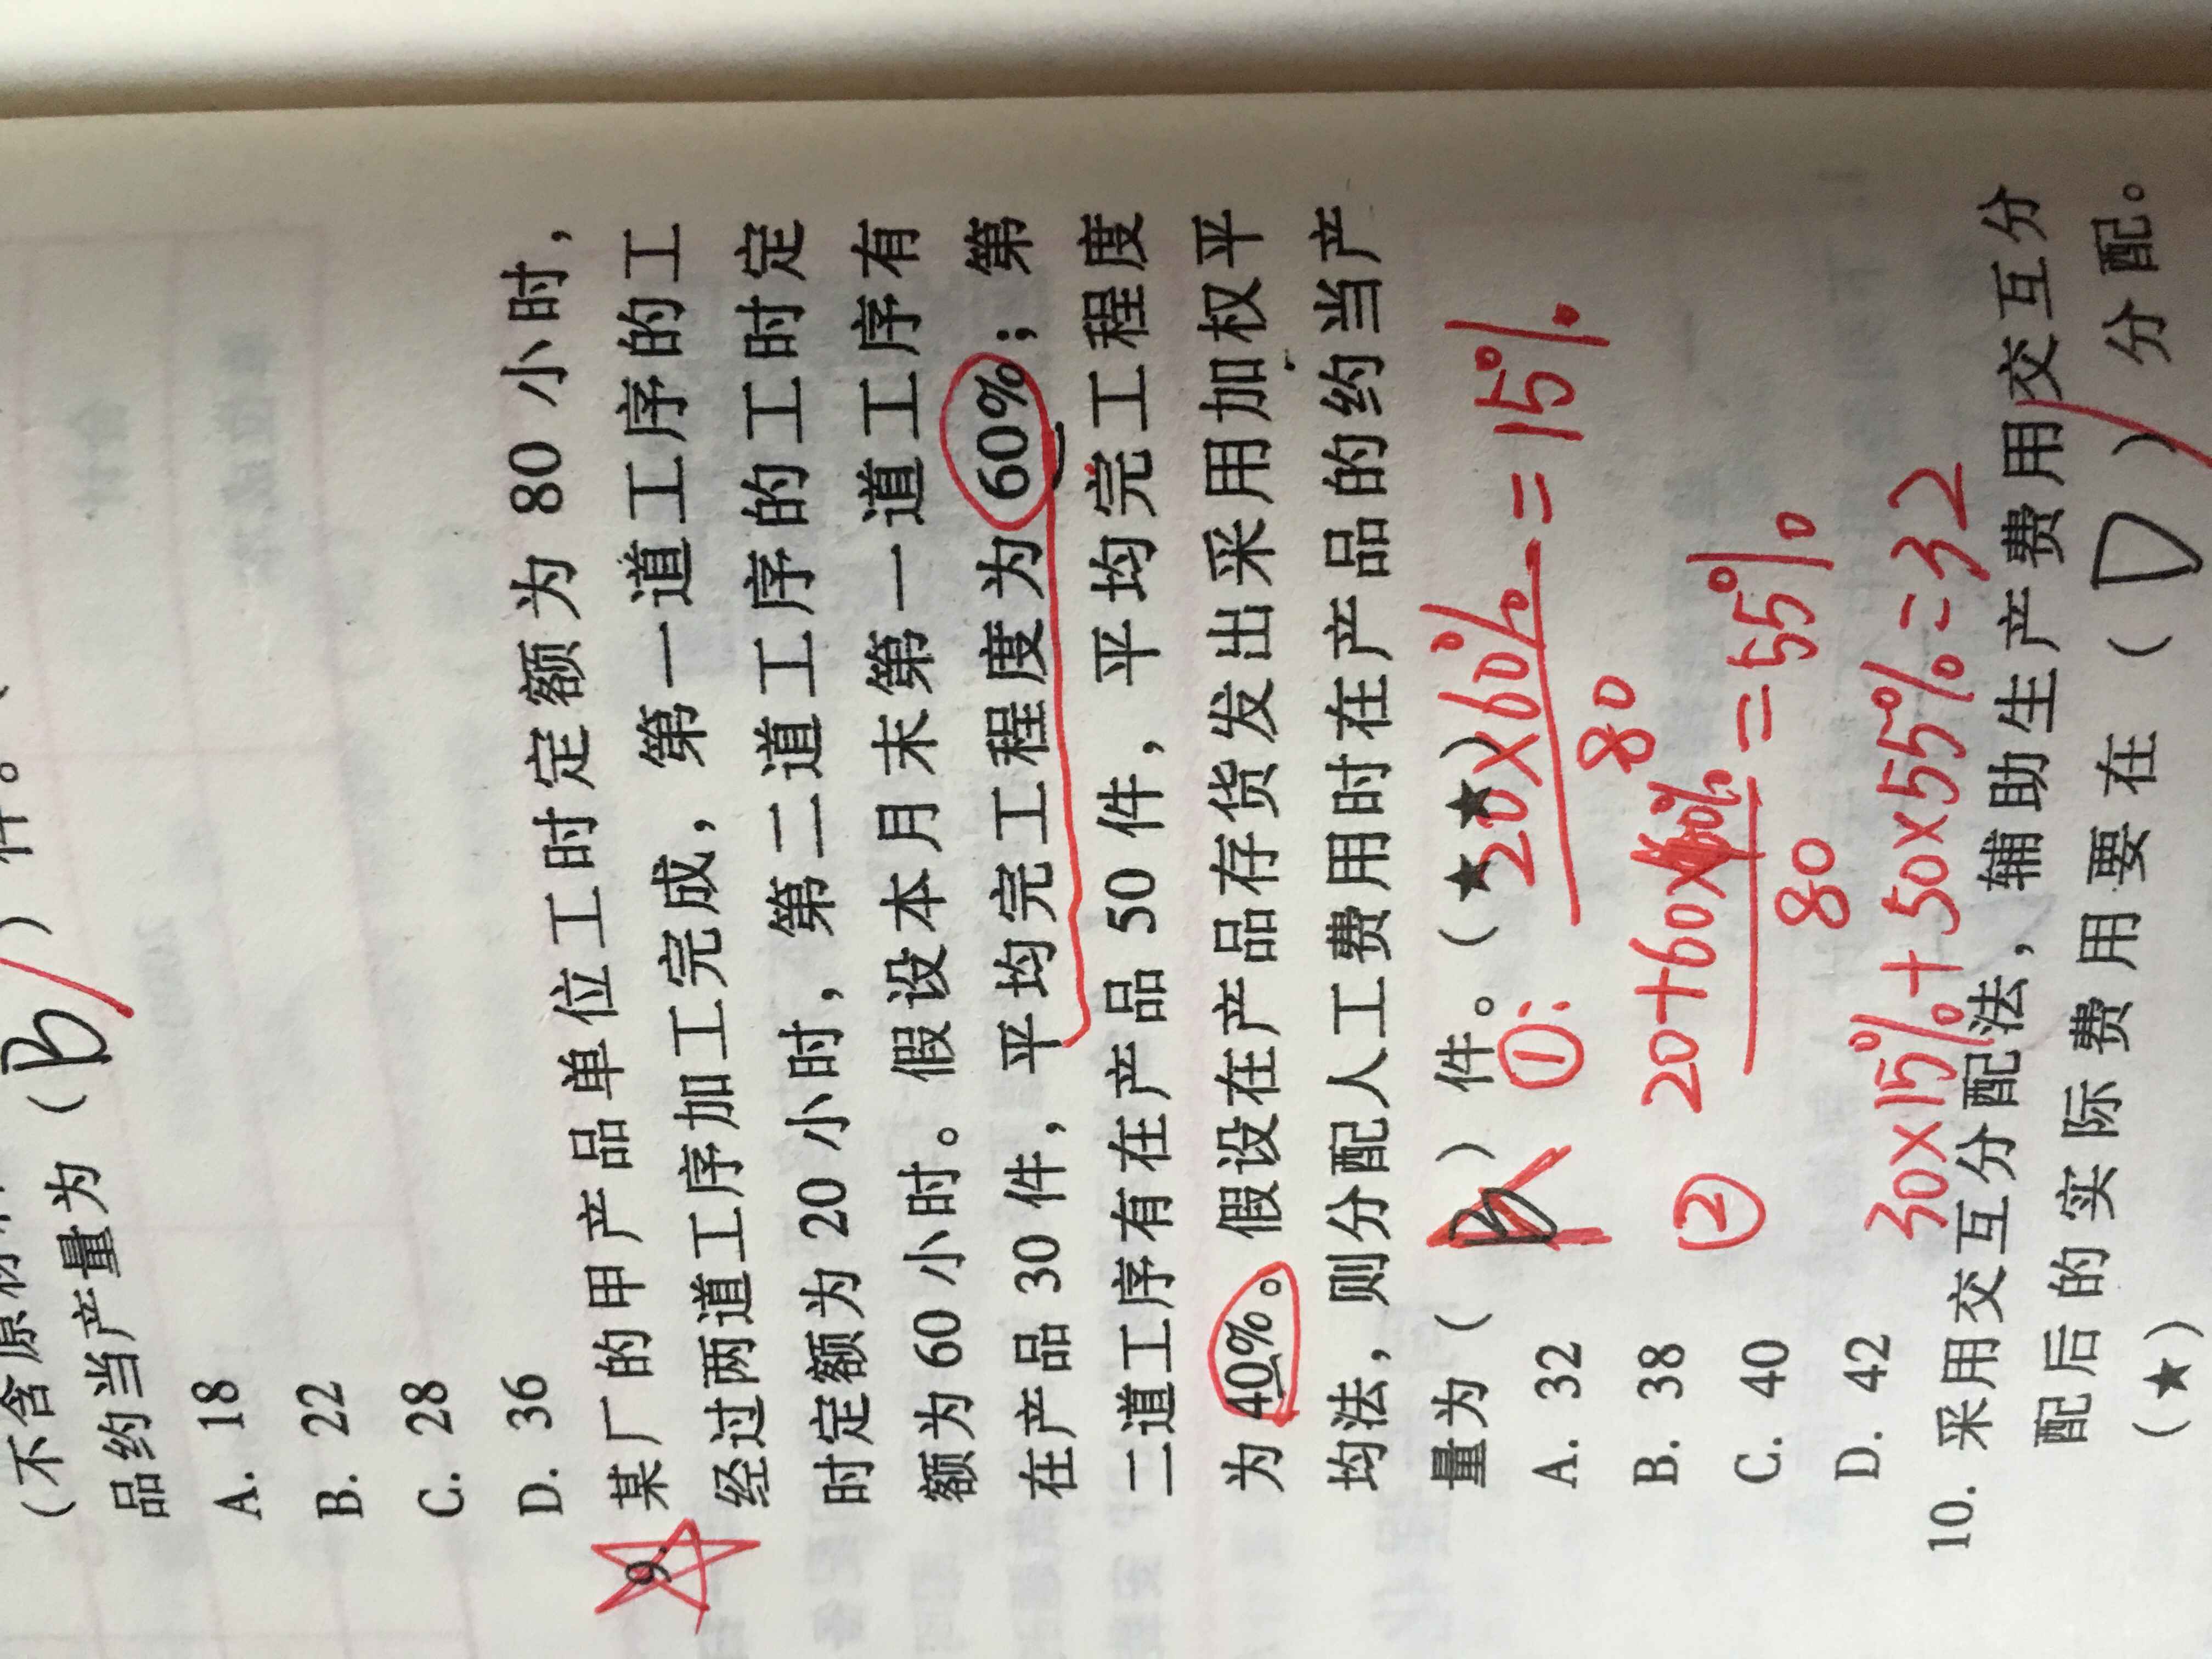 （不含原材料
品约当产量为（B）件。（
A. 18
B. 22
C. 28
D. 36
9. 某厂的甲产品单位工时定额为 80 小时，
经过两道工序加工完成，第一道工序的工
时定额为 20 小时，第二道工序的工时定
额为 60 小时。假设本月末第一道工序有
在产品 30 件，平均完工程度为 60%；第
二道工序有在产品 50 件，平均完工程度
为 40%。假设在产品存货发出采用加权平
均法，则分配人工费用时在产品的约当产
量为（B）件。（★★）
A. 32
B. 38
C. 40
D. 42
①: 20×60%/80 = 15%
② 20+60×40%/80 = 55%
30×15%+50×55%=32
10. 采用交互分配法，辅助生产费用交互分
配后的实际费用要在（D）分配。
（★）